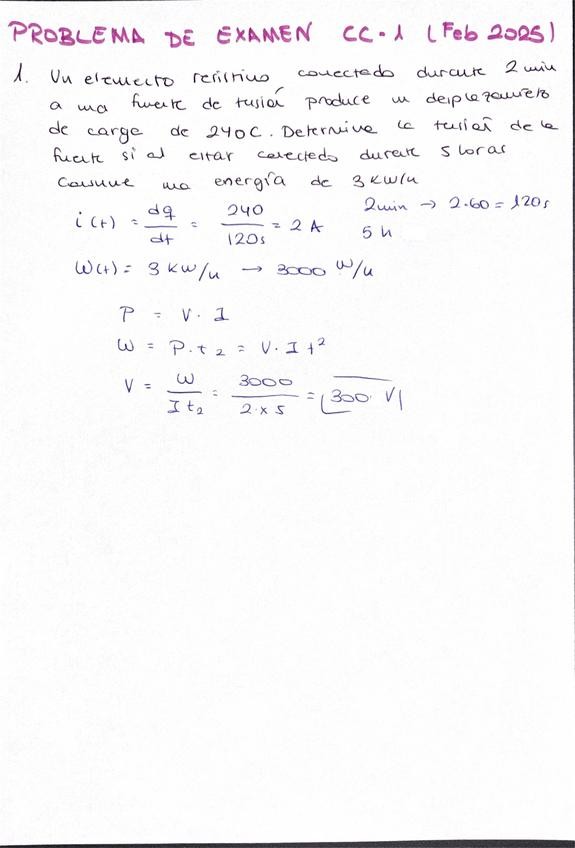 PROBLEMA DE EXAMEN CC-1 (Feb 2025)
1. Un elemento resistivo conectado durante 2 min
a una fuente de tensión produce un desplazamiento
de carga de 240C. Determine la tensión de la
fuente si al estar conectado durante 5 horas
consume una energía de 3 KW/h
i(t) = dq/dt = 240/120s = 2 A 2min → 2·60 = 120s
5 h
W(t) = 3 KW/h → 3000 W/h
P = V · I
W = P·t₂ = V·I t²
V = W/I t₂ = 3000/2 x 5 = 300 V